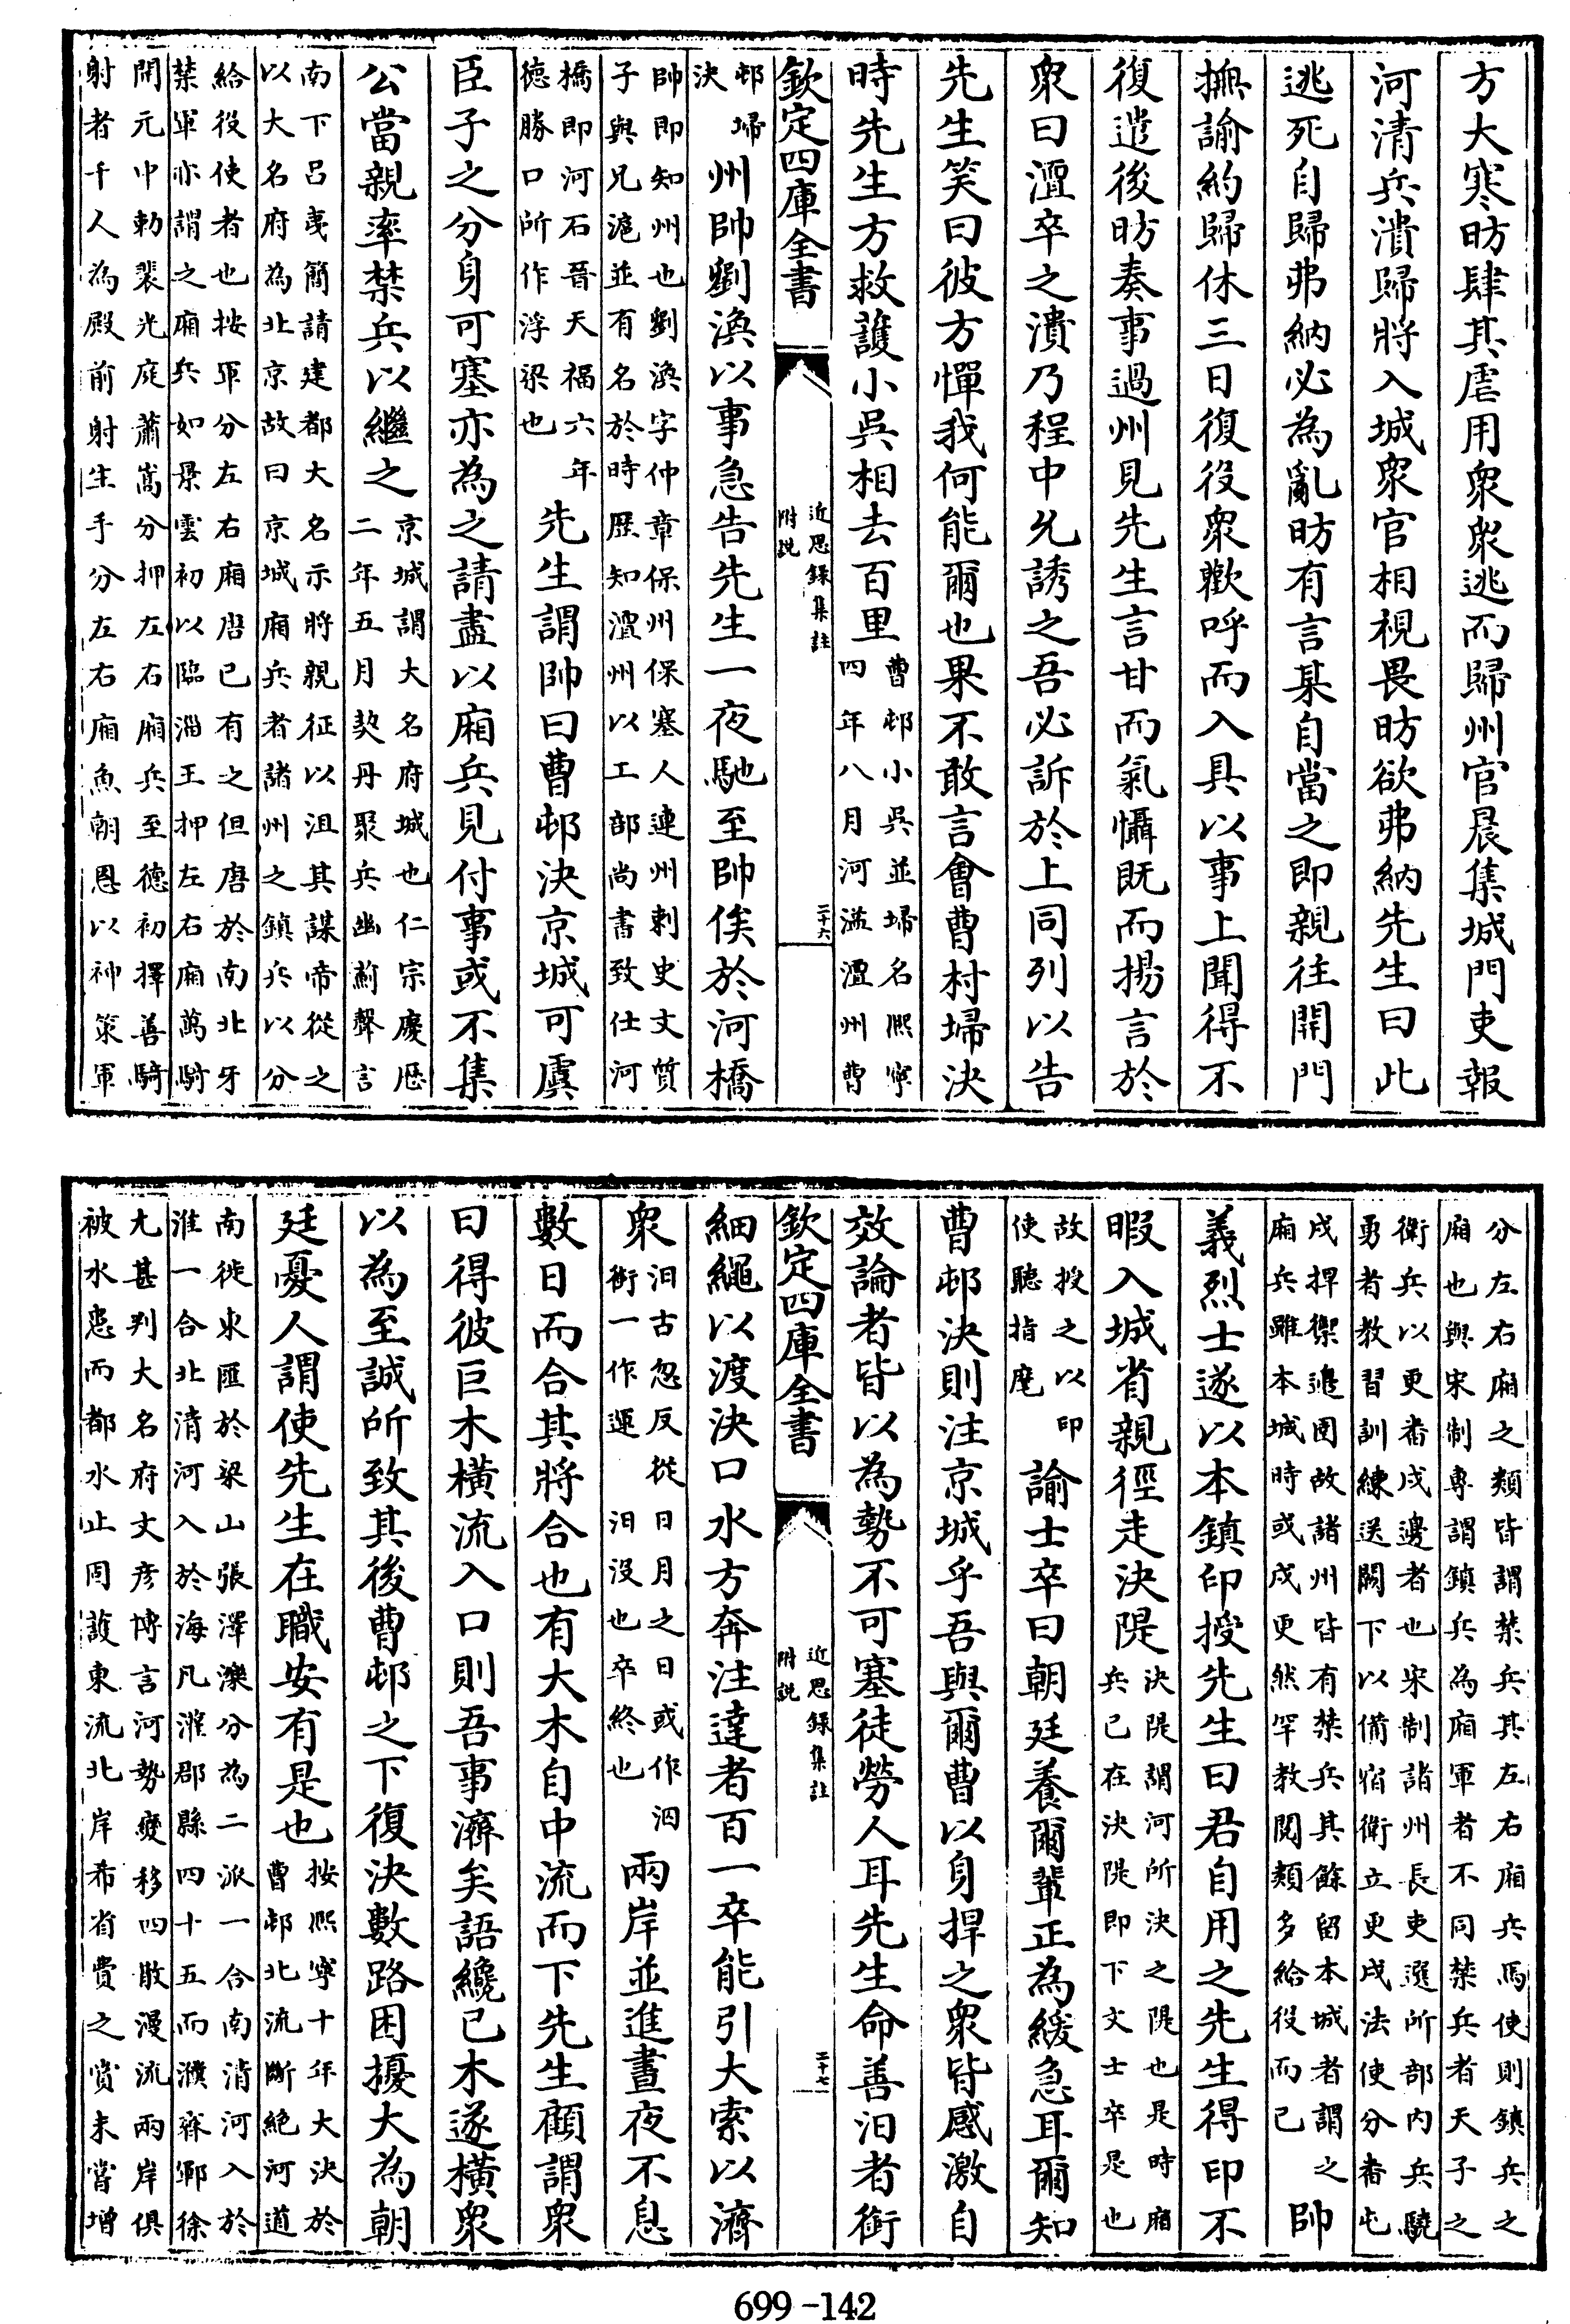 方大寒昉肆其虐用衆衆逃而歸州官晨集城門吏報
河清兵潰歸將入城衆官相視畏昉欲弗納先生曰此
逃死自歸弗納必為亂昉有言某自當之即親往開門
撫諭約歸休三日復役衆歡呼而入具以事上聞得不
復遣後昉奏事過州見先生言甘而氣懾既而揚言於
衆曰澶卒之潰乃程中允誘之吾必訴於上同列以告
先生笑曰彼方憚我何能爾也果不敢言會曹村埽決
時先生方救護小吳相去百里
曹邨小吳並埽名熙寧
四年八月河溢澶州曹
欽定四庫全書
近思錄集註
附説
二十六
邨埽
決
州帥劉渙以事急告先生一夜馳至帥俟於河橋
帥即知州也劉渙字仲章保州保塞人連州刺史文質
子與兄滬並有名於時歴知澶州以工部尚書致仕河
橋即河石晉天福六年
德勝口所作浮梁也
先生謂帥曰曹邨決京城可虞
臣子之分身可塞亦為之請盡以廂兵見付事或不集
公當親率禁兵以繼之
京城謂大名府城也仁宗慶厯
二年五月契丹聚兵幽薊聲言
南下呂夷簡請建都大名示將親征以沮其謀帝從之
以大名府為北京故曰京城廂兵者諸州之鎮兵以分
給役使者也按軍分左右廂唐已有之但唐於南北牙
禁軍亦謂之廂兵如景雲初以臨淄王押左右廂萬騎
開元中勅裴光庭蕭嵩分押左右廂兵至德初擇善騎
射者千人為殿前射生手分左右廂魚朝恩以神策軍
分左右廂之類皆謂禁兵其左右廂兵馬使則鎮兵之
廂也與宋制專謂鎮兵為廂軍者不同禁兵者天子之
衛兵以更番戍邊者也宋制諸州長吏選所部內兵驍
勇者教習訓練送闕下以備宿衛立更戍法使分番屯
戍捍禦邊圉故諸州皆有禁兵其餘留本城者謂之
廂兵雖本城時或戍更然罕教閱類多給役而已
帥
義烈士遂以本鎮印授先生曰君自用之先生得印不
暇入城省親徑走決隄
決隄謂河所決之隄也是時廂
兵已在決隄即下文士卒是也
故授之以印
使聽指麾
諭士卒曰朝廷養爾輩正為緩急耳爾知
曹邨決則注京城乎吾與爾曹以身捍之衆皆感激自
效論者皆以為勢不可塞徒勞人耳先生命善汨者銜
欽定四庫全書
近思錄集註
附説
二十七
細繩以渡決口水方奔注達者百一卒能引大索以濟
衆
汨古忽反從日月之日或作汩
銜一作運汨沒也卒終也
兩岸並進晝夜不息
數日而合其將合也有大木自中流而下先生顧謂衆
曰得彼巨木橫流入口則吾事濟矣語纔已木遂橫衆
以為至誠所致其後曹邨之下復決數路困擾大為朝
廷憂人謂使先生在職安有是也
按熙寧十年大決於
曹邨北流斷絶河道
南徙東匯於梁山張澤濼分為二派一合南清河入於
淮一合北清河入於海凡濉郡縣四十五而濮齊鄆徐
尤甚判大名府文彦博言河勢變移四散漫流兩岸俱
被水患而都水止固護東流北岸希省費之賞未嘗增
699-142